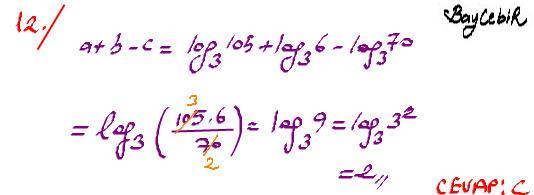 12./
BayCebiR
a+b-c = log₃105+log₃6-log₃70
= log₃(105.6/70) = log₃9 = log₃3²
3
2
=2//
CEVAP: C